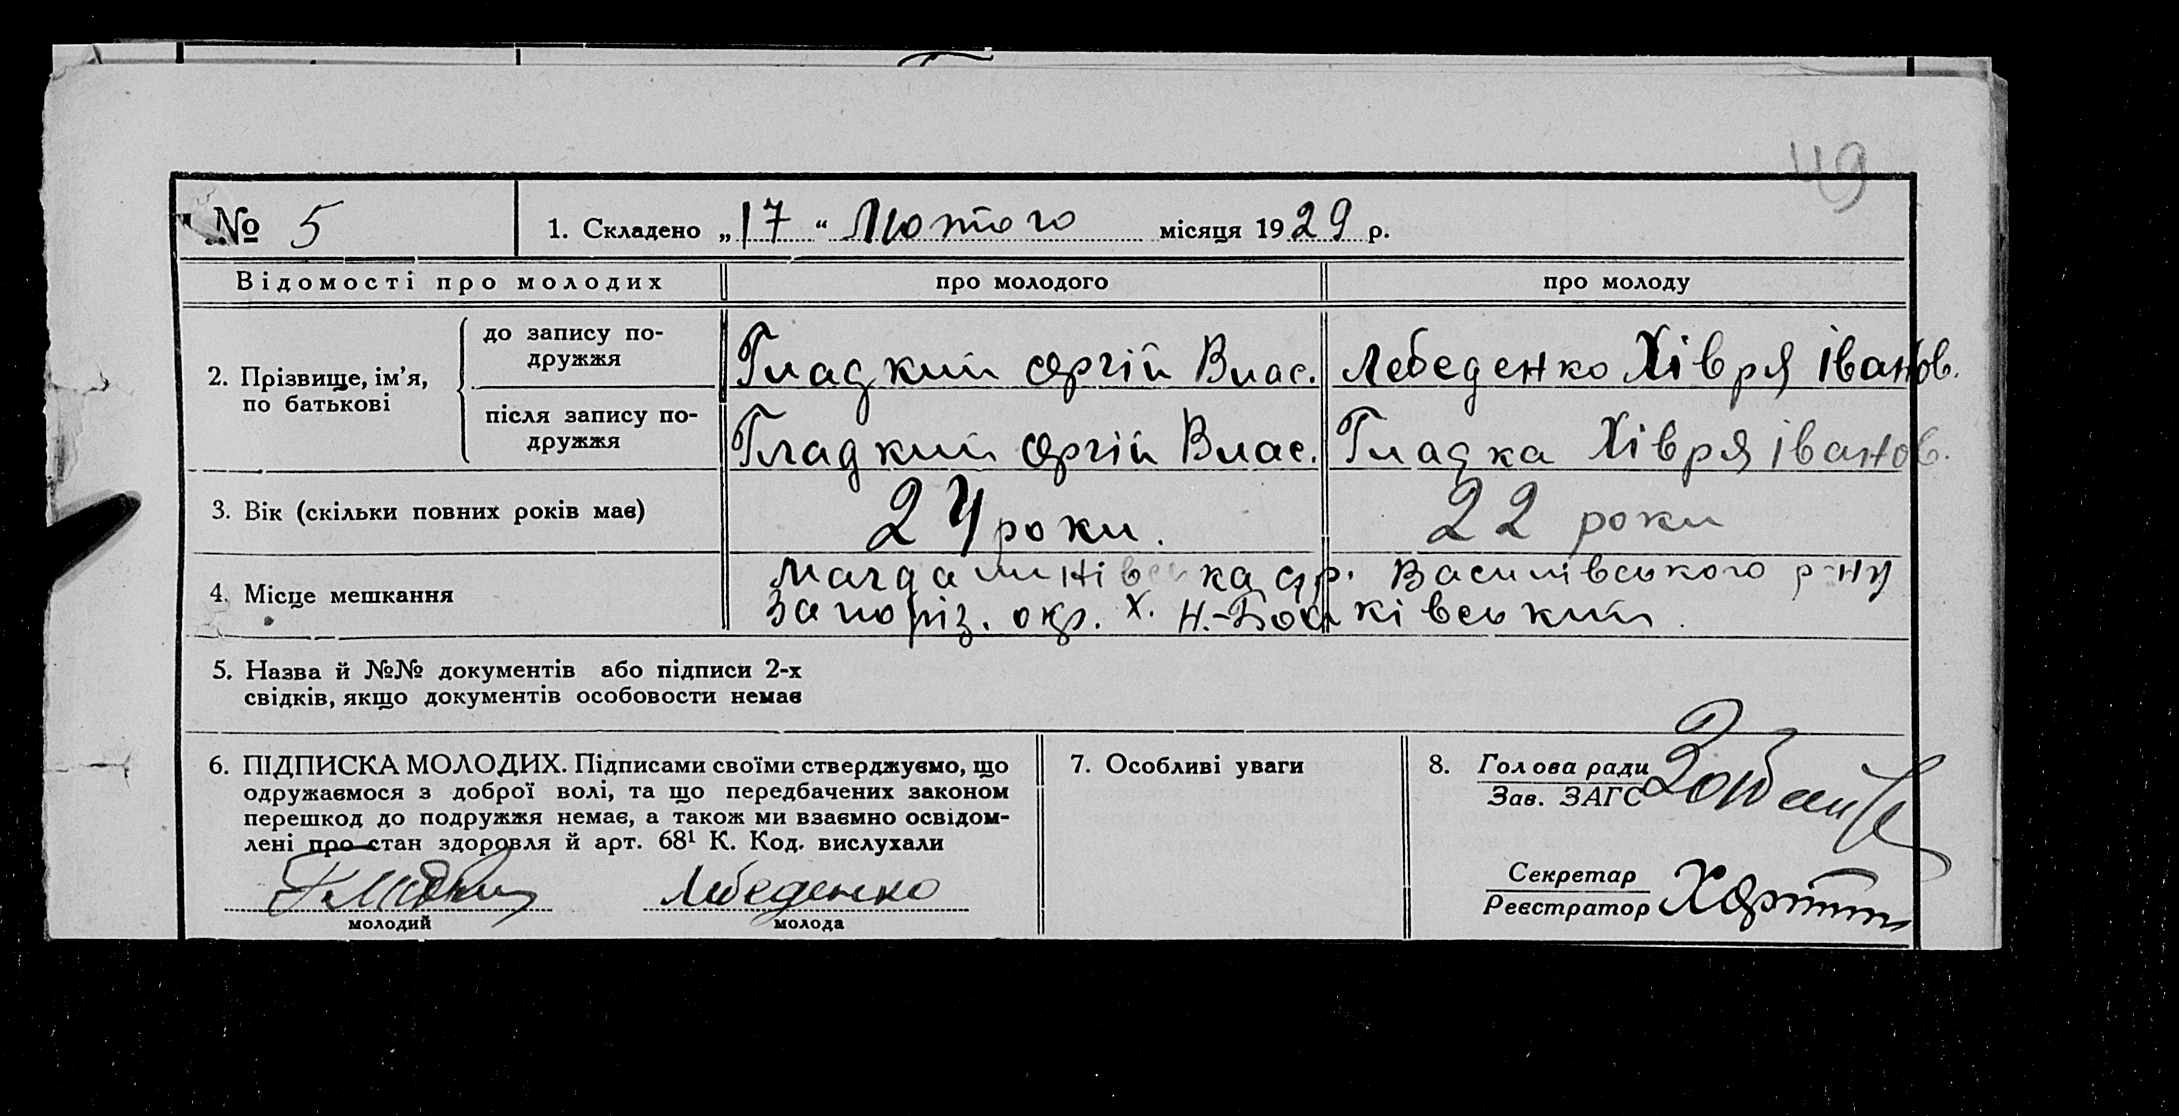 49
№ 5
1. Складено „17“ Лютого місяця 1929 р.
Відомості про молодих
про молодого
про молоду
2. Прізвище, ім’я,
по батькові
до запису по-
дружжя
Гладкий Сергій Влас.
Лебеденко Хівря Іванов.
після запису по-
дружжя
Гладкий Сергій Влас.
Гладка Хівря Іванов.
3. Вік (скільки повних років має)
24 роки.
22 роки
4. Місце мешкання
Магдалинівська с/р. Василівського р-ну
Запоріз. окр. х. Н.-
5. Назва й №№ документів або підписи 2-х
свідків, якщо документів особовости немає
6. ПІДПИСКА МОЛОДИХ. Підписами своїми стверджуємо, що
одружаємося з доброї волі, та що передбачених законом
перешкод до подружжя немає, а також ми взаємно освідом-
лені про стан здоровля й арт. 68¹ К. Код. вислухали
Гладкий
молодий
Лебеденко
молода
7. Особливі уваги
8. Голова ради
Зав. ЗАГС
Секретар
Реєстратор